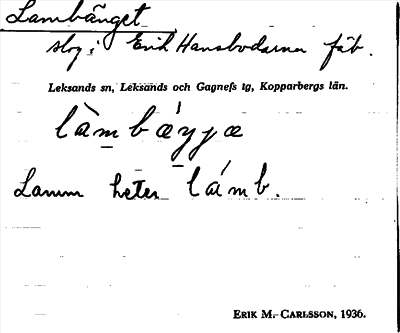 Lambänget
slog i Erik Hansbodarna fäb.
Leksands sn, Leksands och Gagnefs tg, Kopparbergs län.
Lamm heter lámb.
ERIK M. CARLSSON, 1936.